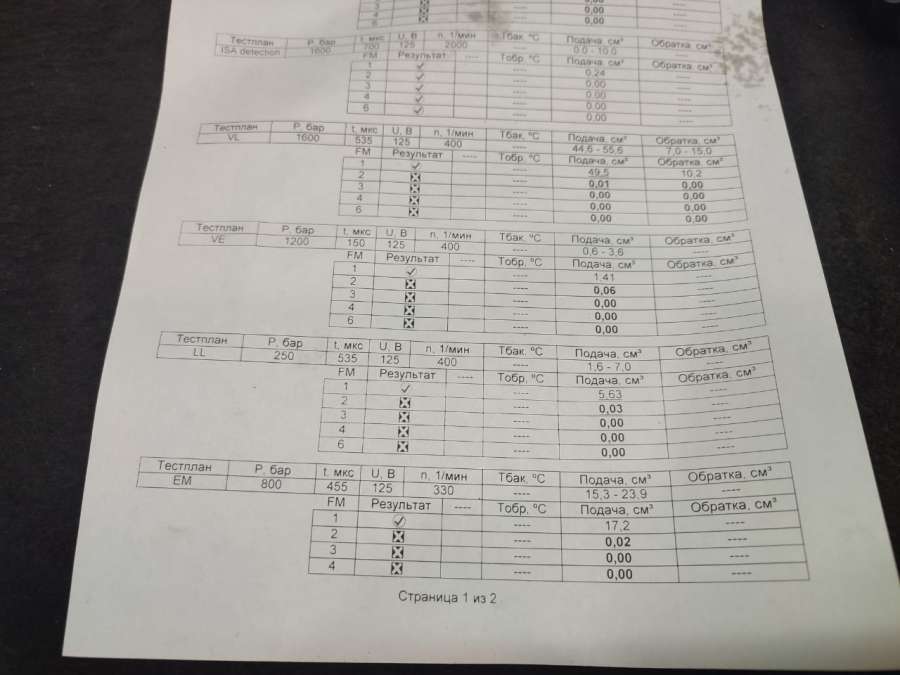 0,00
3 0,00
4 0,00
6 0,00
Тестплан P, бар t, мкс U, В n, 1/мин Тбак, °C Подача, см³ Обратка, см³
ISA detection 1600 700 125 2000 ---- 0,0 - 10,0 ----
FM Результат ---- Тобр, °C Подача, см³ Обратка, см³
1 ---- 0,24 ----
2 ---- 0,00 ----
3 ---- 0,00 ----
4 ---- 0,00 ----
6 ---- 0,00 ----
Тестплан P, бар t, мкс U, В n, 1/мин Тбак, °C Подача, см³ Обратка, см³
VL 1600 535 125 400 ---- 44,6 - 55,6 7,0 - 15,0
FM Результат ---- Тобр, °C Подача, см³ Обратка, см³
1 ---- 49,5 10,2
2 ---- 0,01 0,00
3 ---- 0,00 0,00
4 ---- 0,00 0,00
6 ---- 0,00 0,00
Тестплан P, бар t, мкс U, В n, 1/мин Тбак, °C Подача, см³ Обратка, см³
VE 1200 150 125 400 ---- 0,6 - 3,6 ----
FM Результат ---- Тобр, °C Подача, см³ Обратка, см³
1 ---- 1,41 ----
2 ---- 0,06 ----
3 ---- 0,00 ----
4 ---- 0,00 ----
6 ---- 0,00 ----
Тестплан P, бар t, мкс U, В n, 1/мин Тбак, °C Подача, см³ Обратка, см³
LL 250 535 125 400 ---- 1,6 - 7,0 ----
FM Результат ---- Тобр, °C Подача, см³ Обратка, см³
1 ---- 5,63 ----
2 ---- 0,03 ----
3 ---- 0,00 ----
4 ---- 0,00 ----
6 ---- 0,00 ----
Тестплан P, бар t, мкс U, В n, 1/мин Тбак, °C Подача, см³ Обратка, см³
EM 800 455 125 330 ---- 15,3 - 23,9 ----
FM Результат ---- Тобр, °C Подача, см³ Обратка, см³
1 ---- 17,2 ----
2 ---- 0,02 ----
3 ---- 0,00 ----
4 ---- 0,00 ----
Страница 1 из 2